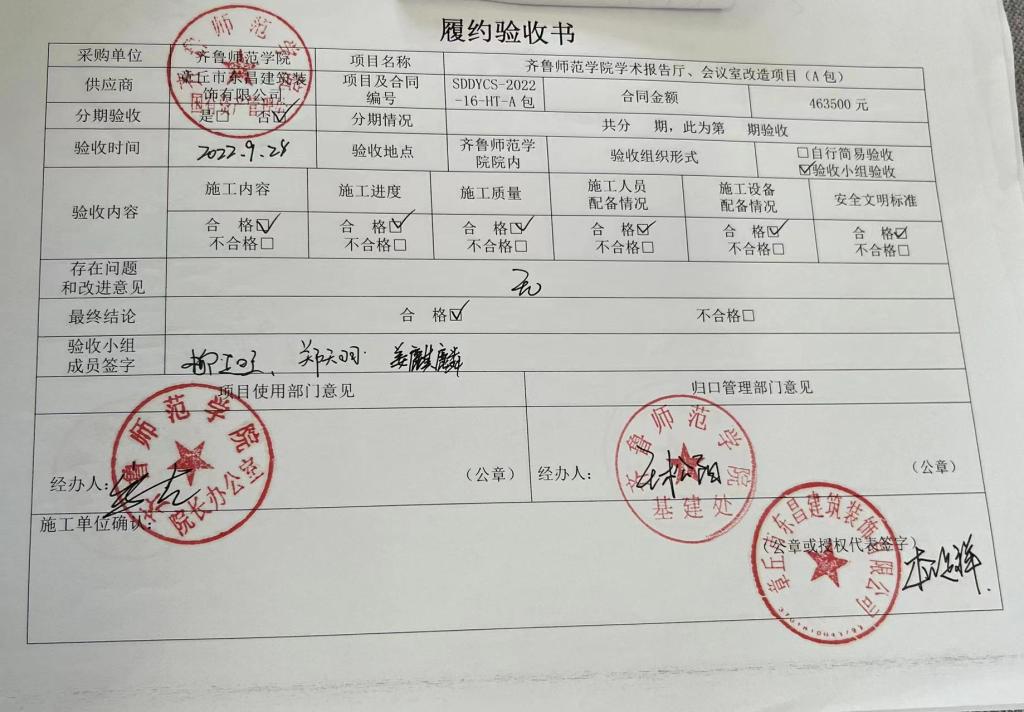 履约验收书
采购单位 齐鲁师范学院 项目名称 齐鲁师范学院学术报告厅、会议室改造项目（A包）
供应商 章丘市东昌建筑装饰有限公司 项目及合同编号 SDDYCS-2022-16-HT-A包 合同金额 463500元
分期验收 是□ 否☑ 分期情况 共分 期，此为第 期验收
验收时间 2022.9.28 验收地点 齐鲁师范学院院内 验收组织形式 □自行简易验收
☑验收小组验收
验收内容 施工内容 施工进度 施工质量 施工人员配备情况 施工设备配备情况 安全文明标准
合 格☑ 合 格☑ 合 格☑ 合 格☑ 合 格☑ 合 格☑
不合格□ 不合格□ 不合格□ 不合格□ 不合格□ 不合格□
存在问题
和改进意见 无
最终结论 合 格☑ 不合格□
验收小组
成员签字 郑天羽 姜麒麟
项目使用部门意见 归口管理部门意见
齐鲁师范学院
院长办公室
齐鲁师范学院
基建处
经办人： （公章） 经办人： （公章）
施工单位确认：
（公章或授权代表签字）
章丘市东昌建筑装饰有限公司